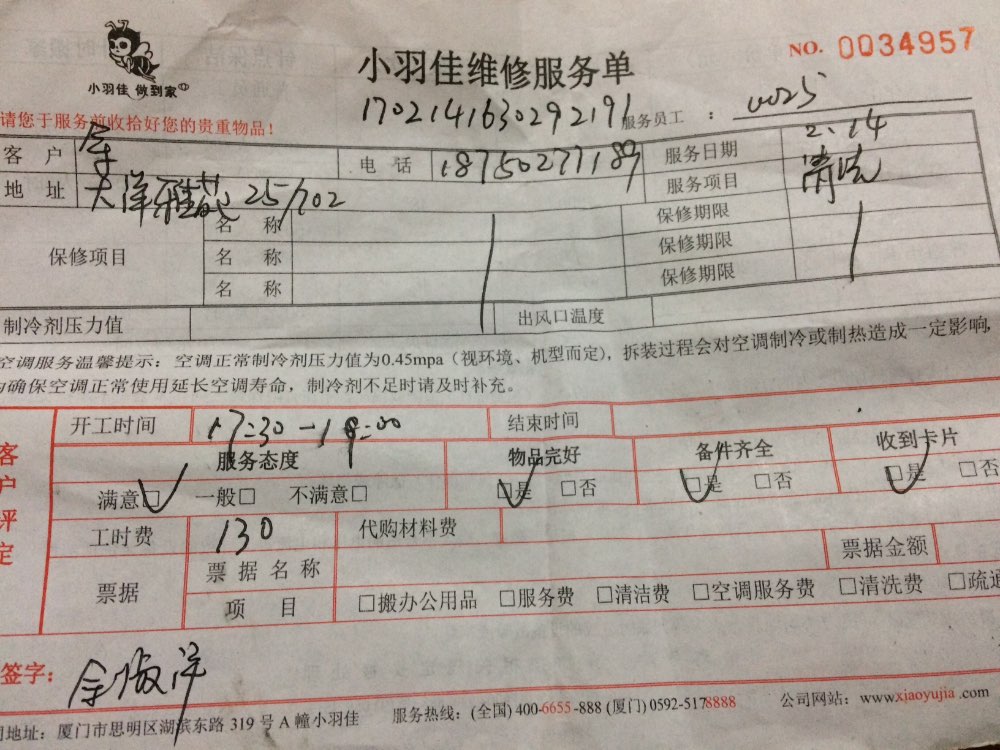 小羽佳 做到家
小羽佳维修服务单
NO. 0034957
17021416302921​91
请您于服务前收拾好您的贵重物品!
服务员工 : 0025
客 户
电 话 18750277189
服务日期 2.14
地 址 大洋雅苑 25/702
服务项目 清洗
保修项目
名 称 保修期限
名 称 保修期限
名 称 保修期限
制冷剂压力值 出风口温度
空调服务温馨提示:空调正常制冷剂压力值为0.45mpa(视环境、机型而定),拆装过程会对空调制冷或制热造成一定影响,
为确保空调正常使用延长空调寿命,制冷剂不足时请及时补充。
客户评定
开工时间 17:30-19:00 结束时间
服务态度 物品完好 备件齐全 收到卡片
满意□ 一般□ 不满意□ □是 □否 □是 □否 □是 □否
工时费 130 代购材料费
票据 票据名称 票据金额
项 目 □搬办公用品 □服务费 □清洁费 □空调服务费 □清洗费 □疏通
签字:
司地址:厦门市思明区湖滨东路 319 号 A 幢小羽佳 服务热线:(全国) 400-6655-888 (厦门) 0592-5178888 公司网站:www.xiaoyujia.com